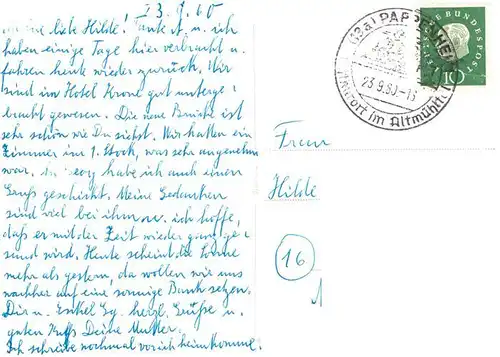 23.9.60
meine liebe Hilde! Tante A. u. ich
haben einige Tage hier verbracht u.
fahren heute wieder zurück. Wir
sind im Hotel Krone gut unterge-
bracht gewesen. Die neue Brücke ist
sehr schön wie Du siehst. Wir hatten ein
Zimmer im 1. Stock, was sehr angenehm
war. habe ich auch einen
Gruß geschickt. Meine Gedanken
sind viel bei ihm u. ich hoffe,
daß er mit der Zeit wieder ganz ge-
sund wird. Heute scheint die Sonne
mehr als gestern, da wollen wir uns
nachher auf eine sonnige Bank setzen.
Dir u. Enkel herzl. Grüße u.
guten Kuß Deine Mutter.
Ich schreibe nochmal wo ich heimkomme.
(13a) PAPPENHEIM
23.9.60-15
Kurort im Altmühltl
DEUTSCHE BUNDESPOST
10
Frau
Hilde
16
1